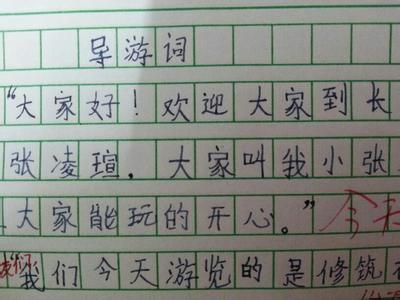 导游词
“大家好！欢迎大家到长
张凌瑄，大家叫我小张
大家能玩的开心。”今天
我们今天游览的是修筑